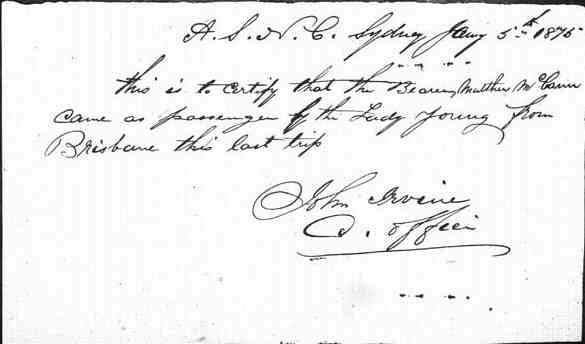 A. S. N. C. Sydney Jany 5th 1875
this is to certify that the Bearer, Matthew McCann
came as passenger by the Lady Young from
Brisbane this last trip
John Irvine
C. Officer